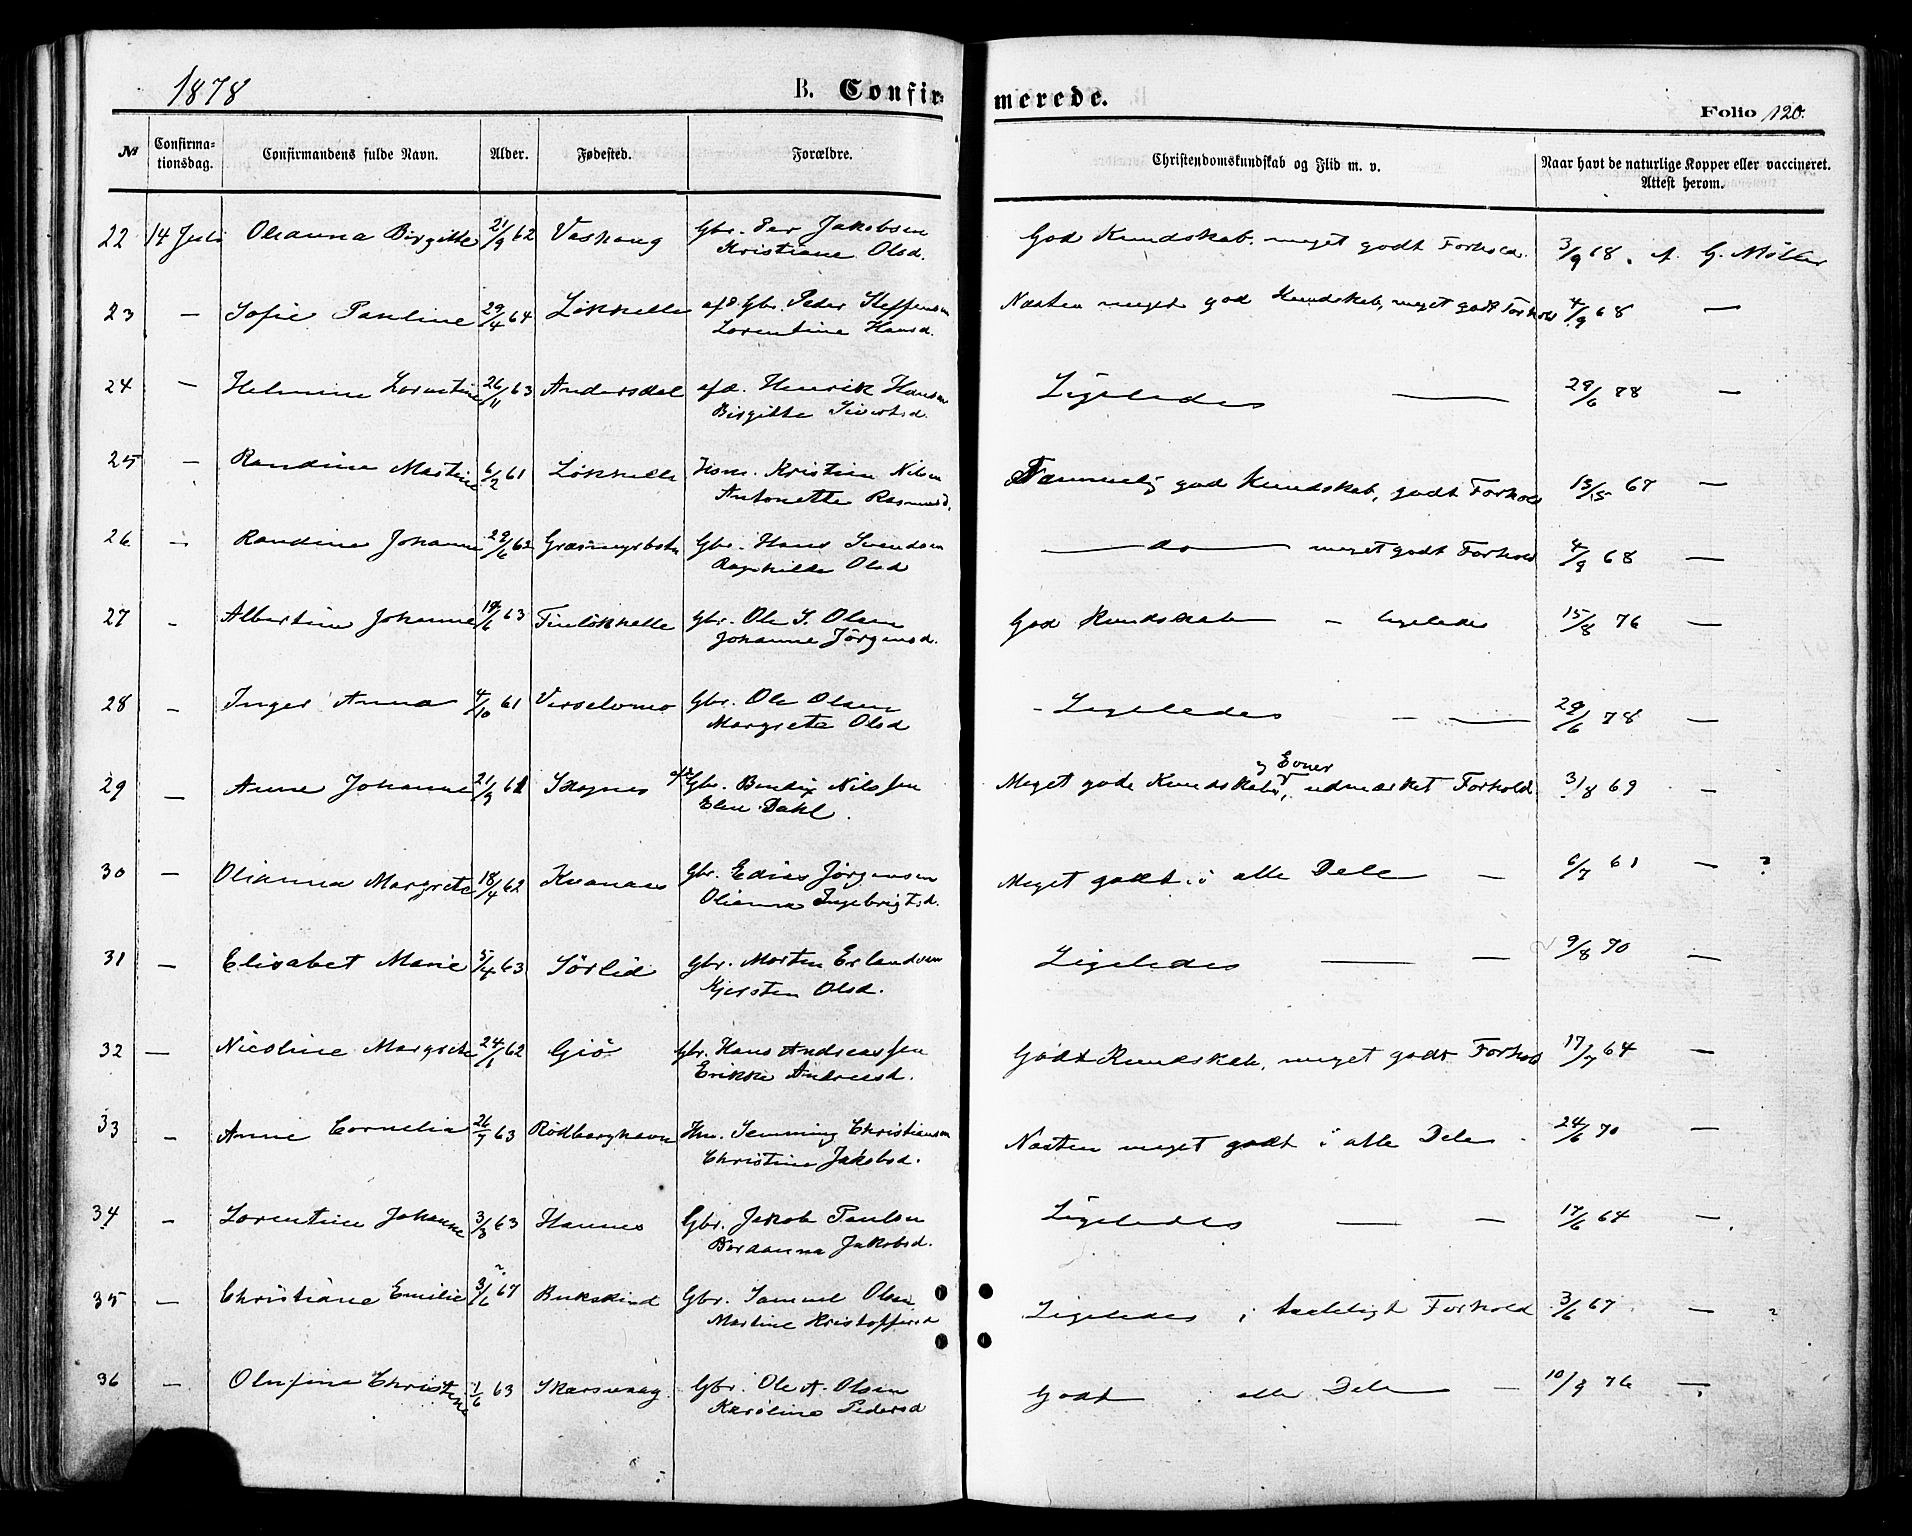 1878
B. Confirmerede.
Folio 120.
№ Confirmationsdag. Confirmandens fulde Navn. Alder. Fødested. Forældre. Christendomskundskab og Flid m. v. Naar havt de naturlige Kopper eller vaccineret. Attest herom.
22 14 Juli Olianna Birgitte 21/9 62 Vashaug Gbr. Per Jakobsen God Kundskab, meget godt Forhold. 3/9 68. A. G. Møller
Kristiane Olsd.
23 — Sofie Pauline 29/4 64 Løkkelle afd. Gbr. Peder Steffensen Næsten meget god Kundskab, meget godt Forhold 4/9 68 —
Lorentine Hansd.
24 — Helmine Lorentine 26/11 63 Andersdal afd. Henrik Hansen Ligeledes — 29/6 78 —
Birgitte Sivertsd.
25 — Randine Martine 6/2 61 Løkkelle Hsm. Kristian Nilsen Temmelig god Kundskab, godt Forhold 13/5 67 —
Antonette Rasmusd.
26 — Randine Johanne 29/6 62 Græsmyrbotn Gbr. Hans Svendsen — do — meget godt Forhold 4/9 68 —
Ragnhilde Olsd
27 — Albertine Johanne 14/6 63 Finløkkelle Gbr. Ole S. Olsen God Kundskab — ligeledes 15/8 76 —
Johanne Jørgensd.
28 — Inger Anna 4/10 61 Gbr. Ole Olsen - Ligeledes — — 29/6 78 —
Margrete Olsd
29 — Anne Johanne 21/9 61 Skognes afd. Gbr. Bendix Nilssen Meget gode Kundskaber og Evner, udmærket Forhold 31/8 69 —
Elen Dahl.
30 — Olianna Margrete 18/4 62 Kvanaas Gbr. Edias Jørgensen Meget godt i alle Dele — 6/7 61 — ?
Olianna Ingebrigtsd.
31 — Elisabet Marie 5/4 63 Sørlid Gbr. Morten Erlandsen Ligeledes — — 9/8 70 —
Kjersten Olsd.
32 — Nicoline Margrete 24/1 62 Giø Gbr. Hans Andreassen Godt Kundskab, meget godt Forhold 17/7 64 —
Erikke Andreasd.
33 — Anne Cornelia 26/7 63 Rødberghavn Hm. Semming Christiansen Næsten meget godt i alle Dele - 24/6 70 —
Christine Jakobsd.
34 — Lorentine Johanne 3/3 63 Hannes Gbr. Jakob Paulsen Ligeledes — — 17/6 64 —
Berdanna Jakobsd.
35 — Christiane Emilie 3/6 67 ? Bukskind Gbr. Samuel Olsen Ligeledes i taaleligt Forhold 3/6 67. — ?
Martine Kristoffersd
36 — Olufine Christine 1/6 63 Skarsvaag Gbr. Ole A. Olsen Godt i alle Dele — 10/9 76 —
Karoline Pedersd